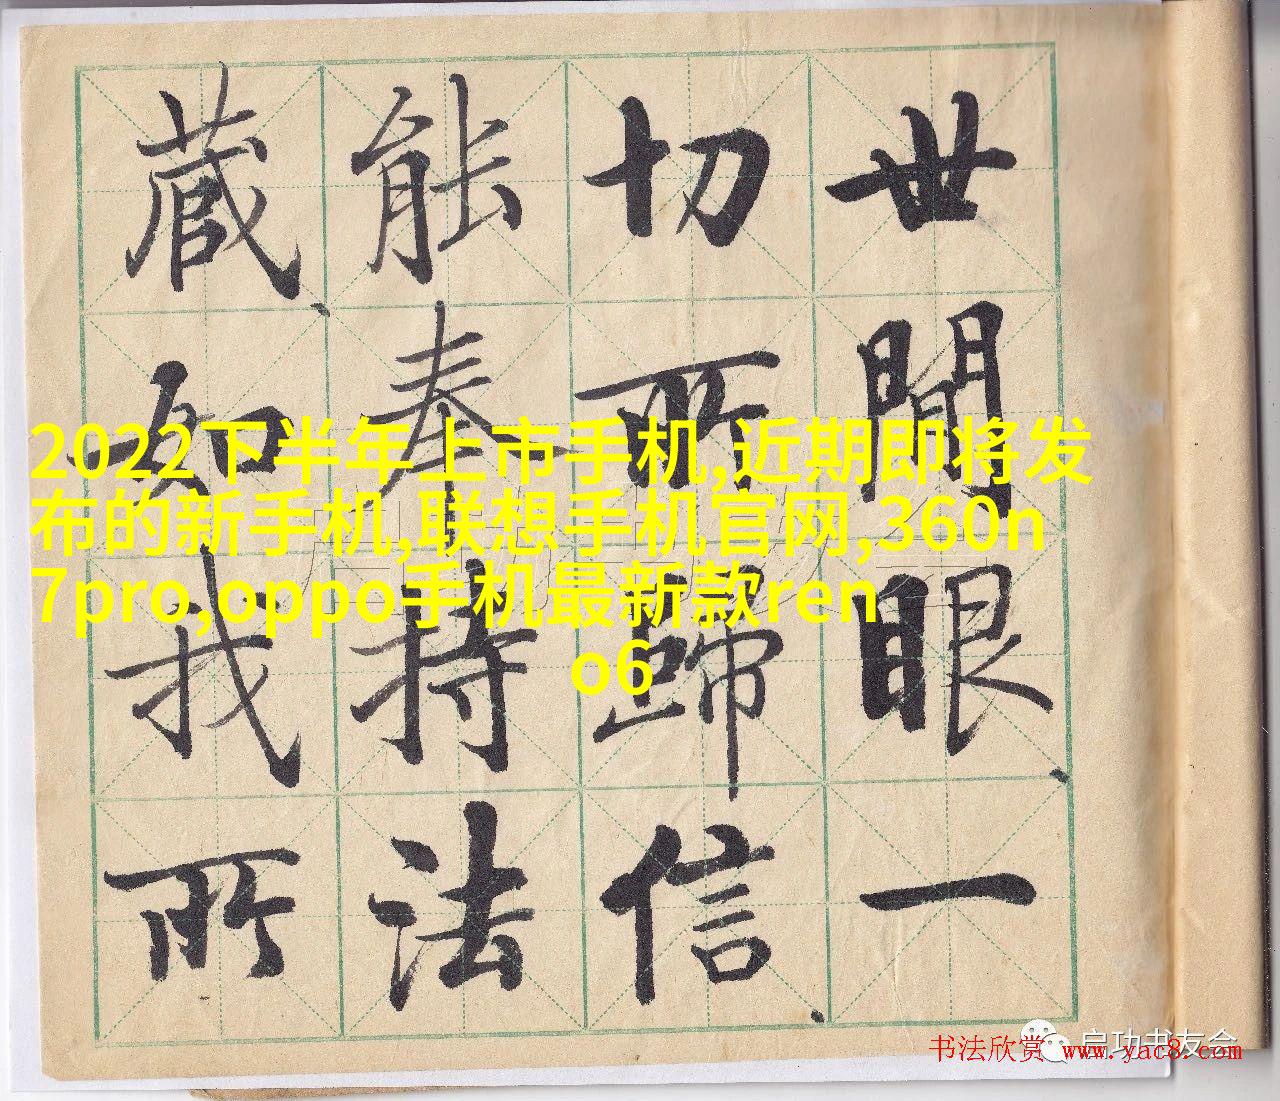 世間眼一
切所歸信
能奉持法
藏如我所
2022下半年上市手机,近期即将发
布的新手机,联想手机官网,360n
7pro,oppo手机最新款ren
o6
启功书友会
书法欣赏 www.yac8.com